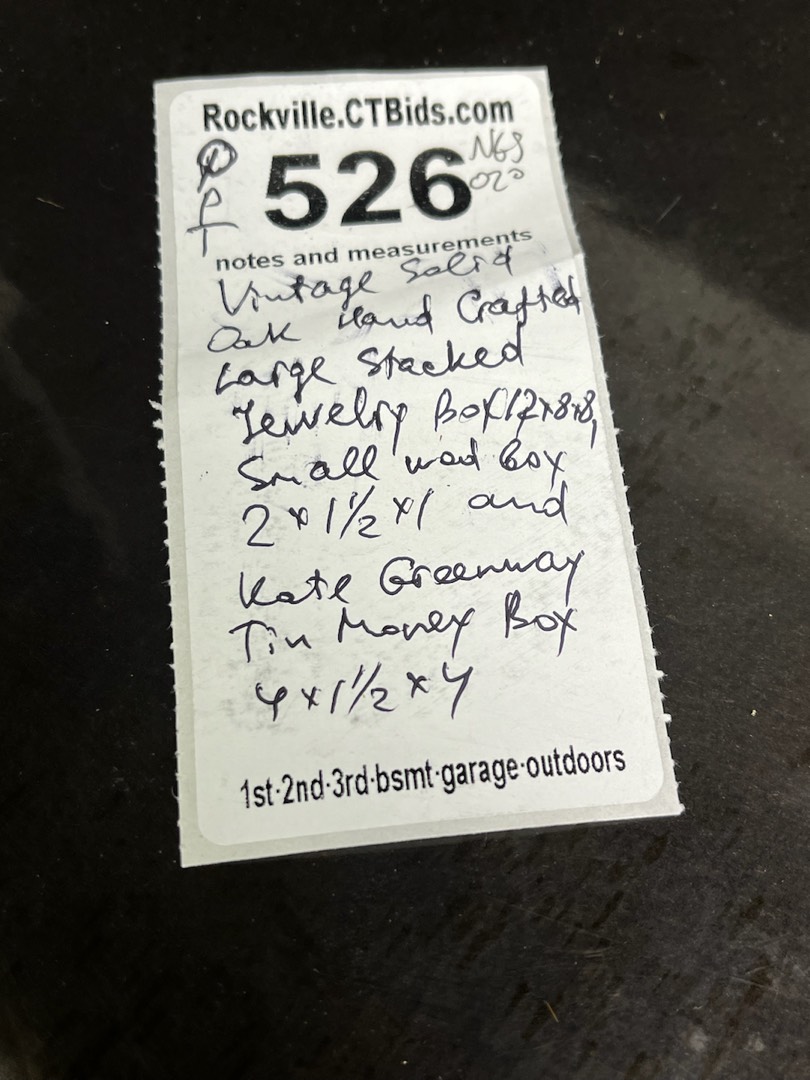 Rockville.CTBids.com
526
P
T
notes and measurements
Vintage Solid
Oak Hand Crafted
Large Stacked
Jewelry Box 12x8x8,
Small wod Box
2 x 1 1/2 x 1 and
Kate Greenway
Tin Money Box
4 x 1 1/2 x 4
1st·2nd·3rd·bsmt·garage·outdoors